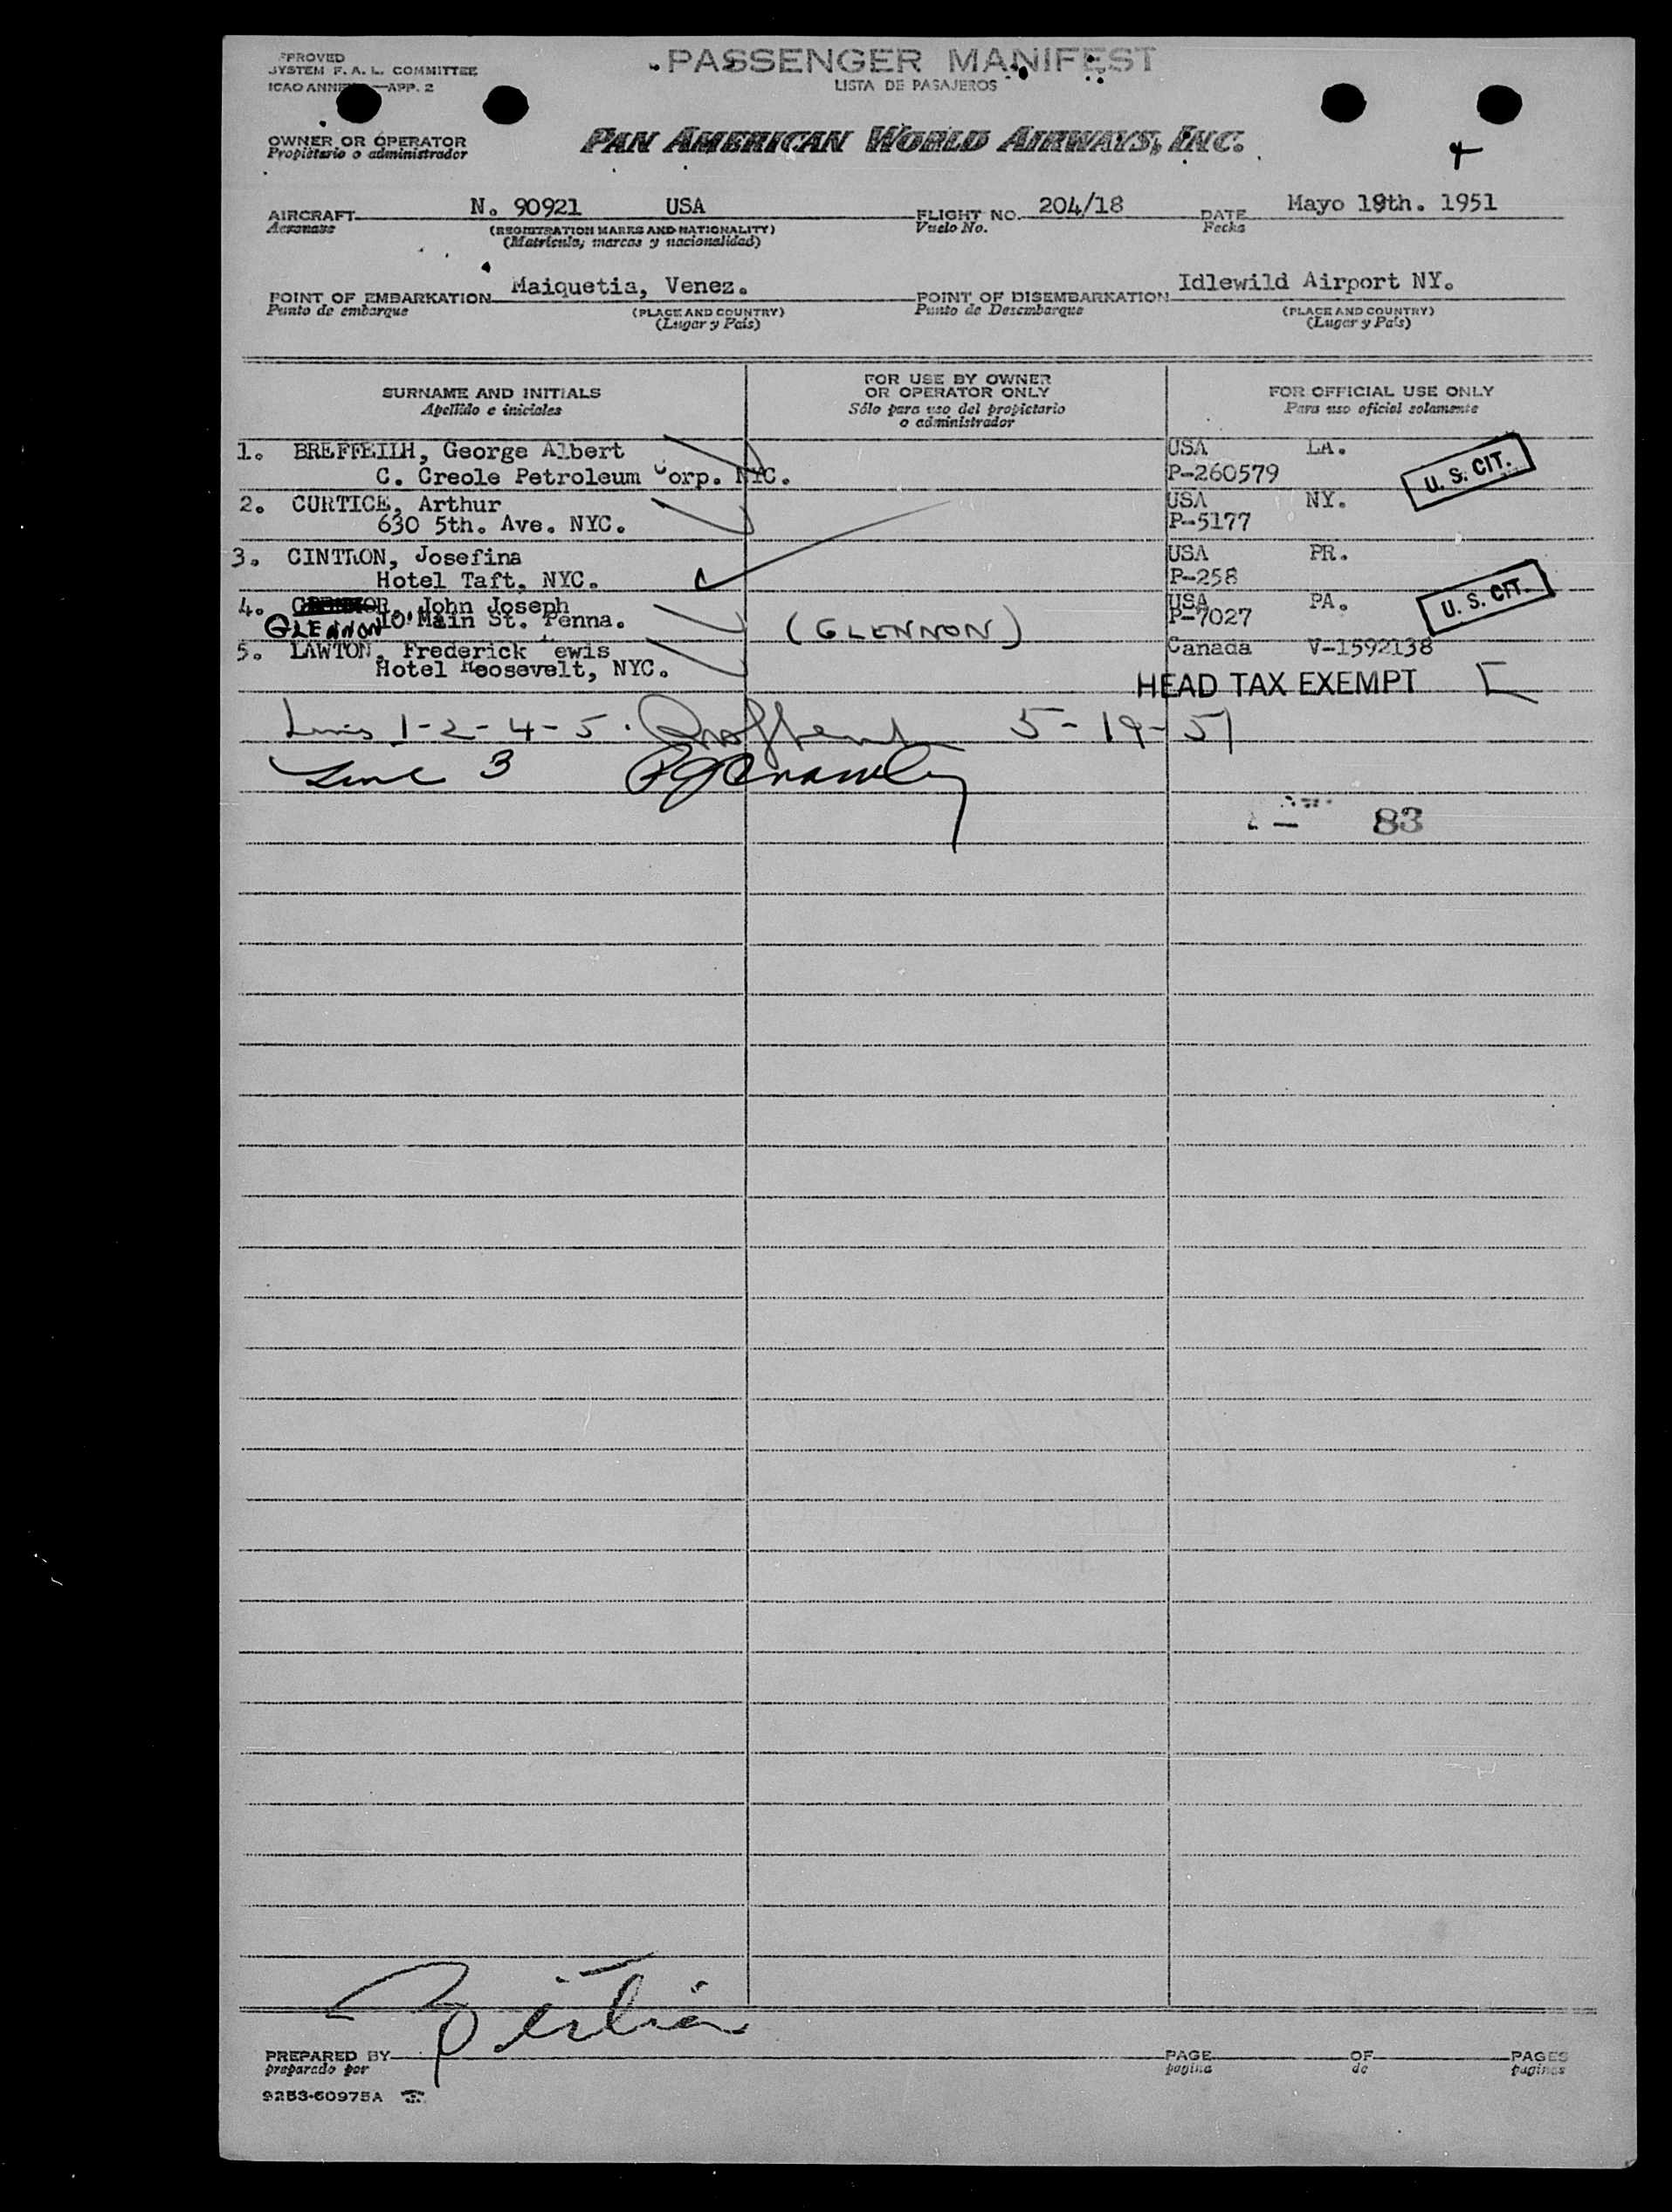 PASSENGER MANIFEST
LISTA DE PASAJEROS
SYSTEM F. A. L. COMMITTEE
APP. 2
OWNER OR OPERATOR
Propietario o administrador
PAN AMERICAN WORLD AIRWAYS, INC.
AIRCRAFT N. 90921 USA FLIGHT NO. 204/18 DATE Mayo 19th. 1951
Aeronave (REGISTRATION MARKS AND NATIONALITY) Vuelo No. Fecha
(Matrícula, marcas y nacionalidad)
POINT OF EMBARKATION Maiquetia, Venez. POINT OF DISEMBARKATION Idlewild Airport NY.
Punto de embarque (PLACE AND COUNTRY) Punto de Desembarque (PLACE AND COUNTRY)
(Lugar y País) (Lugar y País)
SURNAME AND INITIALS
Apellido e iniciales
FOR USE BY OWNER
OR OPERATOR ONLY
Sólo para uso del propietario
o administrador
FOR OFFICIAL USE ONLY
Para uso oficial solamente
1. BREFFEILH, George Albert USA LA.
C. Creole Petroleum Corp. NYC. P-260579 U. S. CIT.
2. CURTICE, Arthur USA NY.
630 5th. Ave. NYC. P-5177
3. CINTRON, Josefina USA PR.
Hotel Taft, NYC. P-258
4. John Joseph USA PA. U. S. CIT.
GLENNON 10 Main St. Penna. (GLENNON) P-7027
5. LAWTON, Frederick ewis Canada V-1592138
Hotel Roosevelt, NYC. HEAD TAX EXEMPT
Lines 1-2-4-5. 5-19-51
Line 3
83
PREPARED BY PAGE OF PAGES
preparado por pagina de paginas
9253-60975A